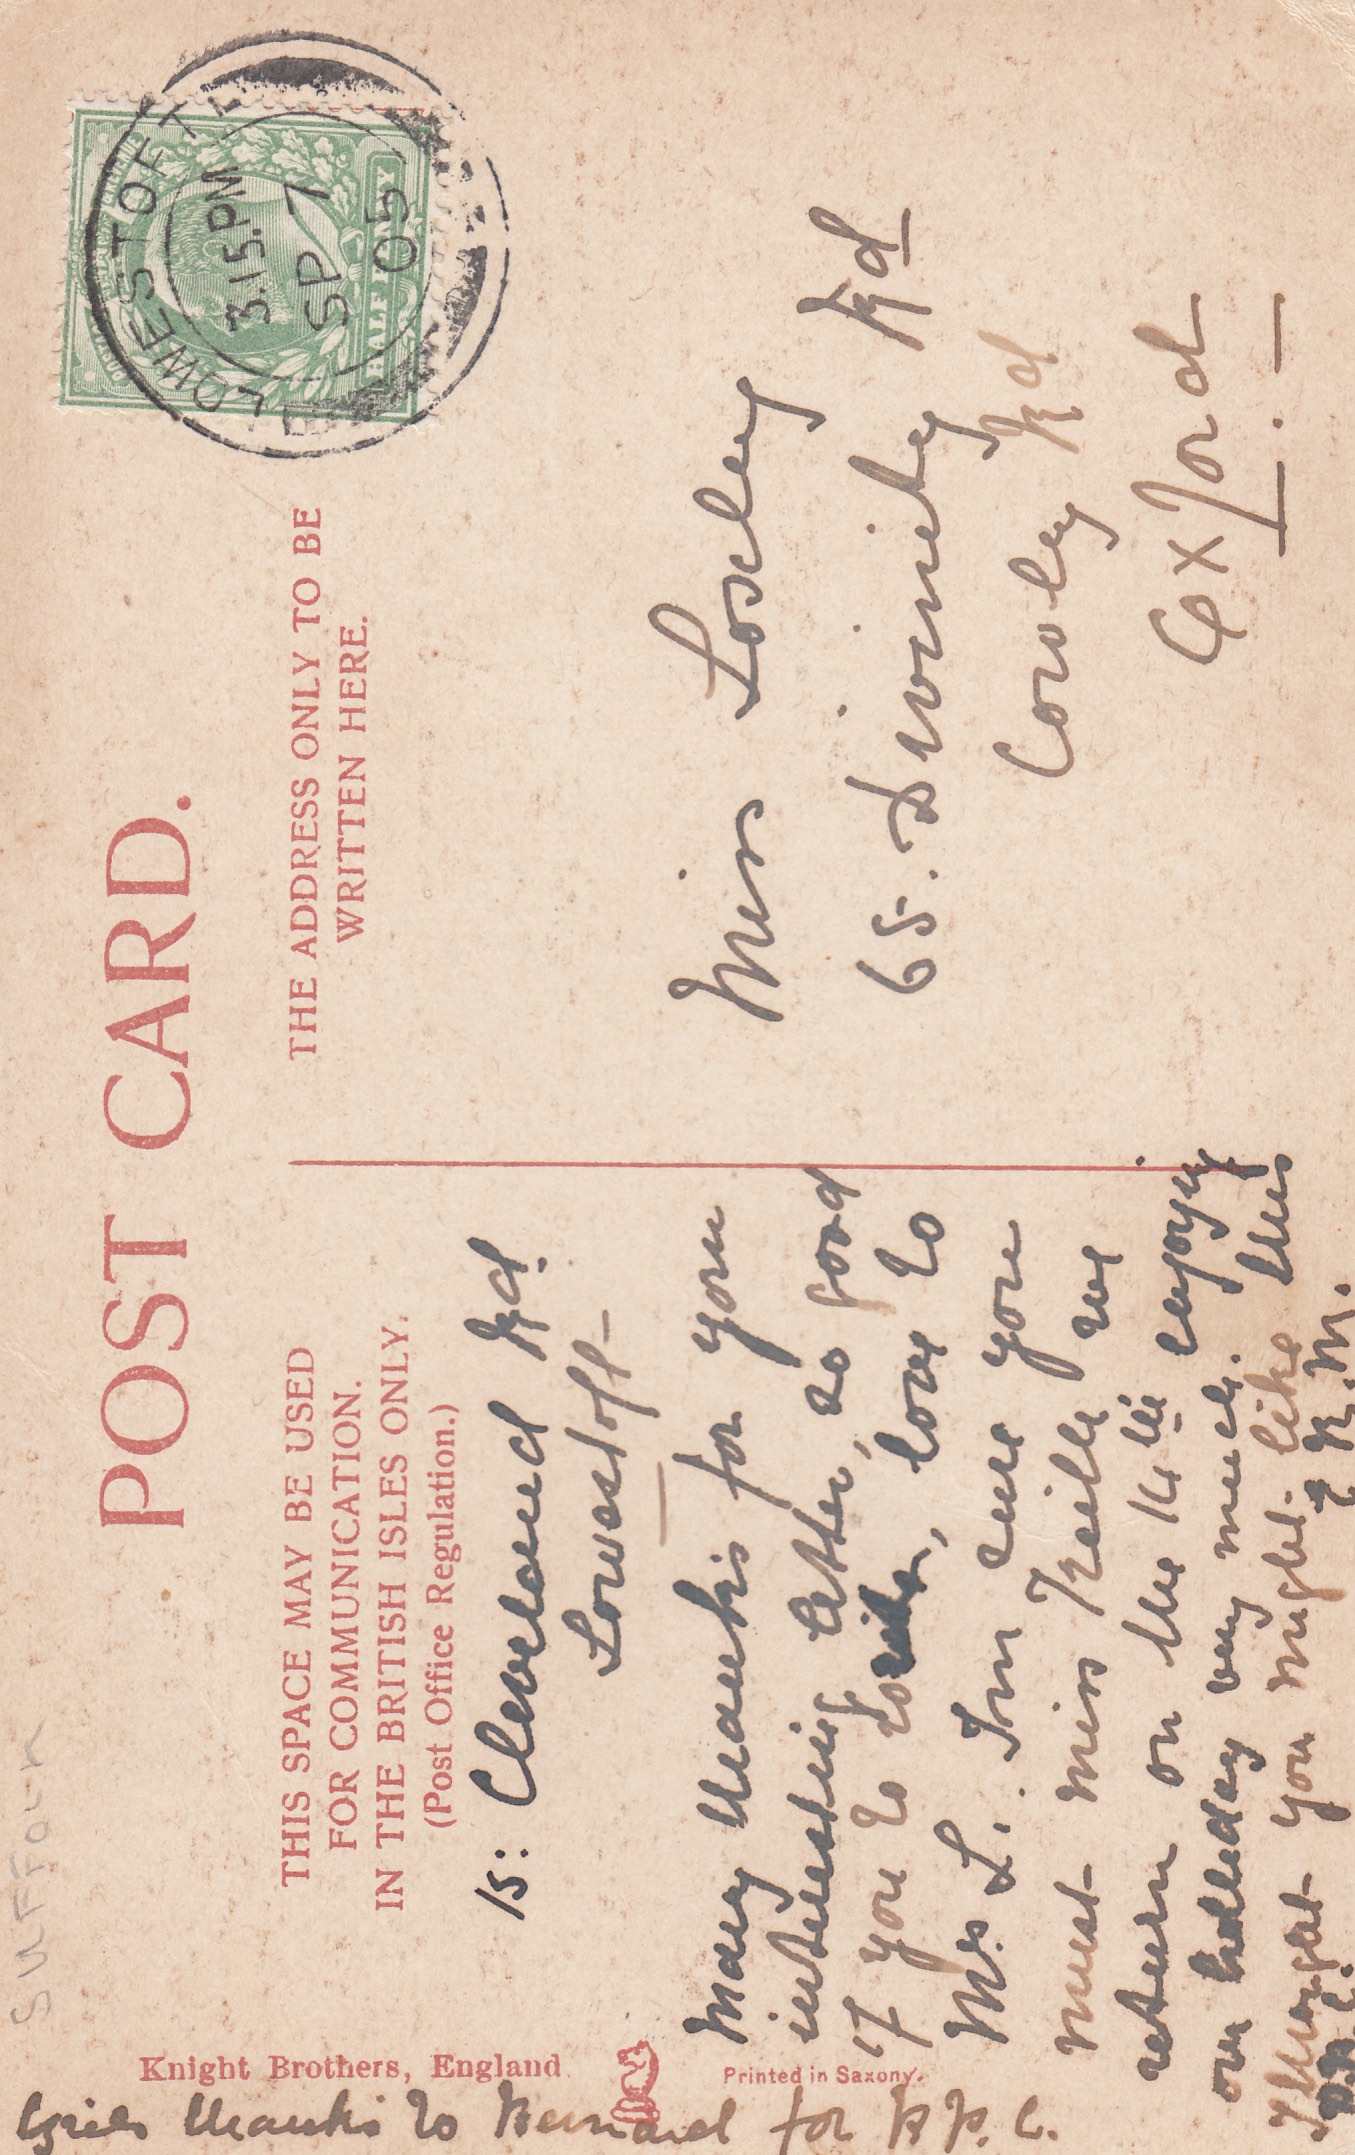 SUFFOLK
POST CARD.
THIS SPACE MAY BE USED
FOR COMMUNICATION.
IN THE BRITISH ISLES ONLY.
(Post Office Regulation.)
THE ADDRESS ONLY TO BE
WRITTEN HERE.
POSTAGE
HALF PENNY
LOWESTOFT
3.15.PM
SP 7
05
15: Cleveland Rd.
Lowestoft
Many thanks for your
interesting letter, so good
of you to love to
Mrs L. I'm sure you
must miss Keith we
return on the
our holiday very much.
thought you might like this
P.P.C. R.M.
Girls thanks to Bernard for P.P.C.
Miss Loseley
65. Divinity Rd
Cowley Rd
Oxford
Knight Brothers, England
Printed in Saxony.